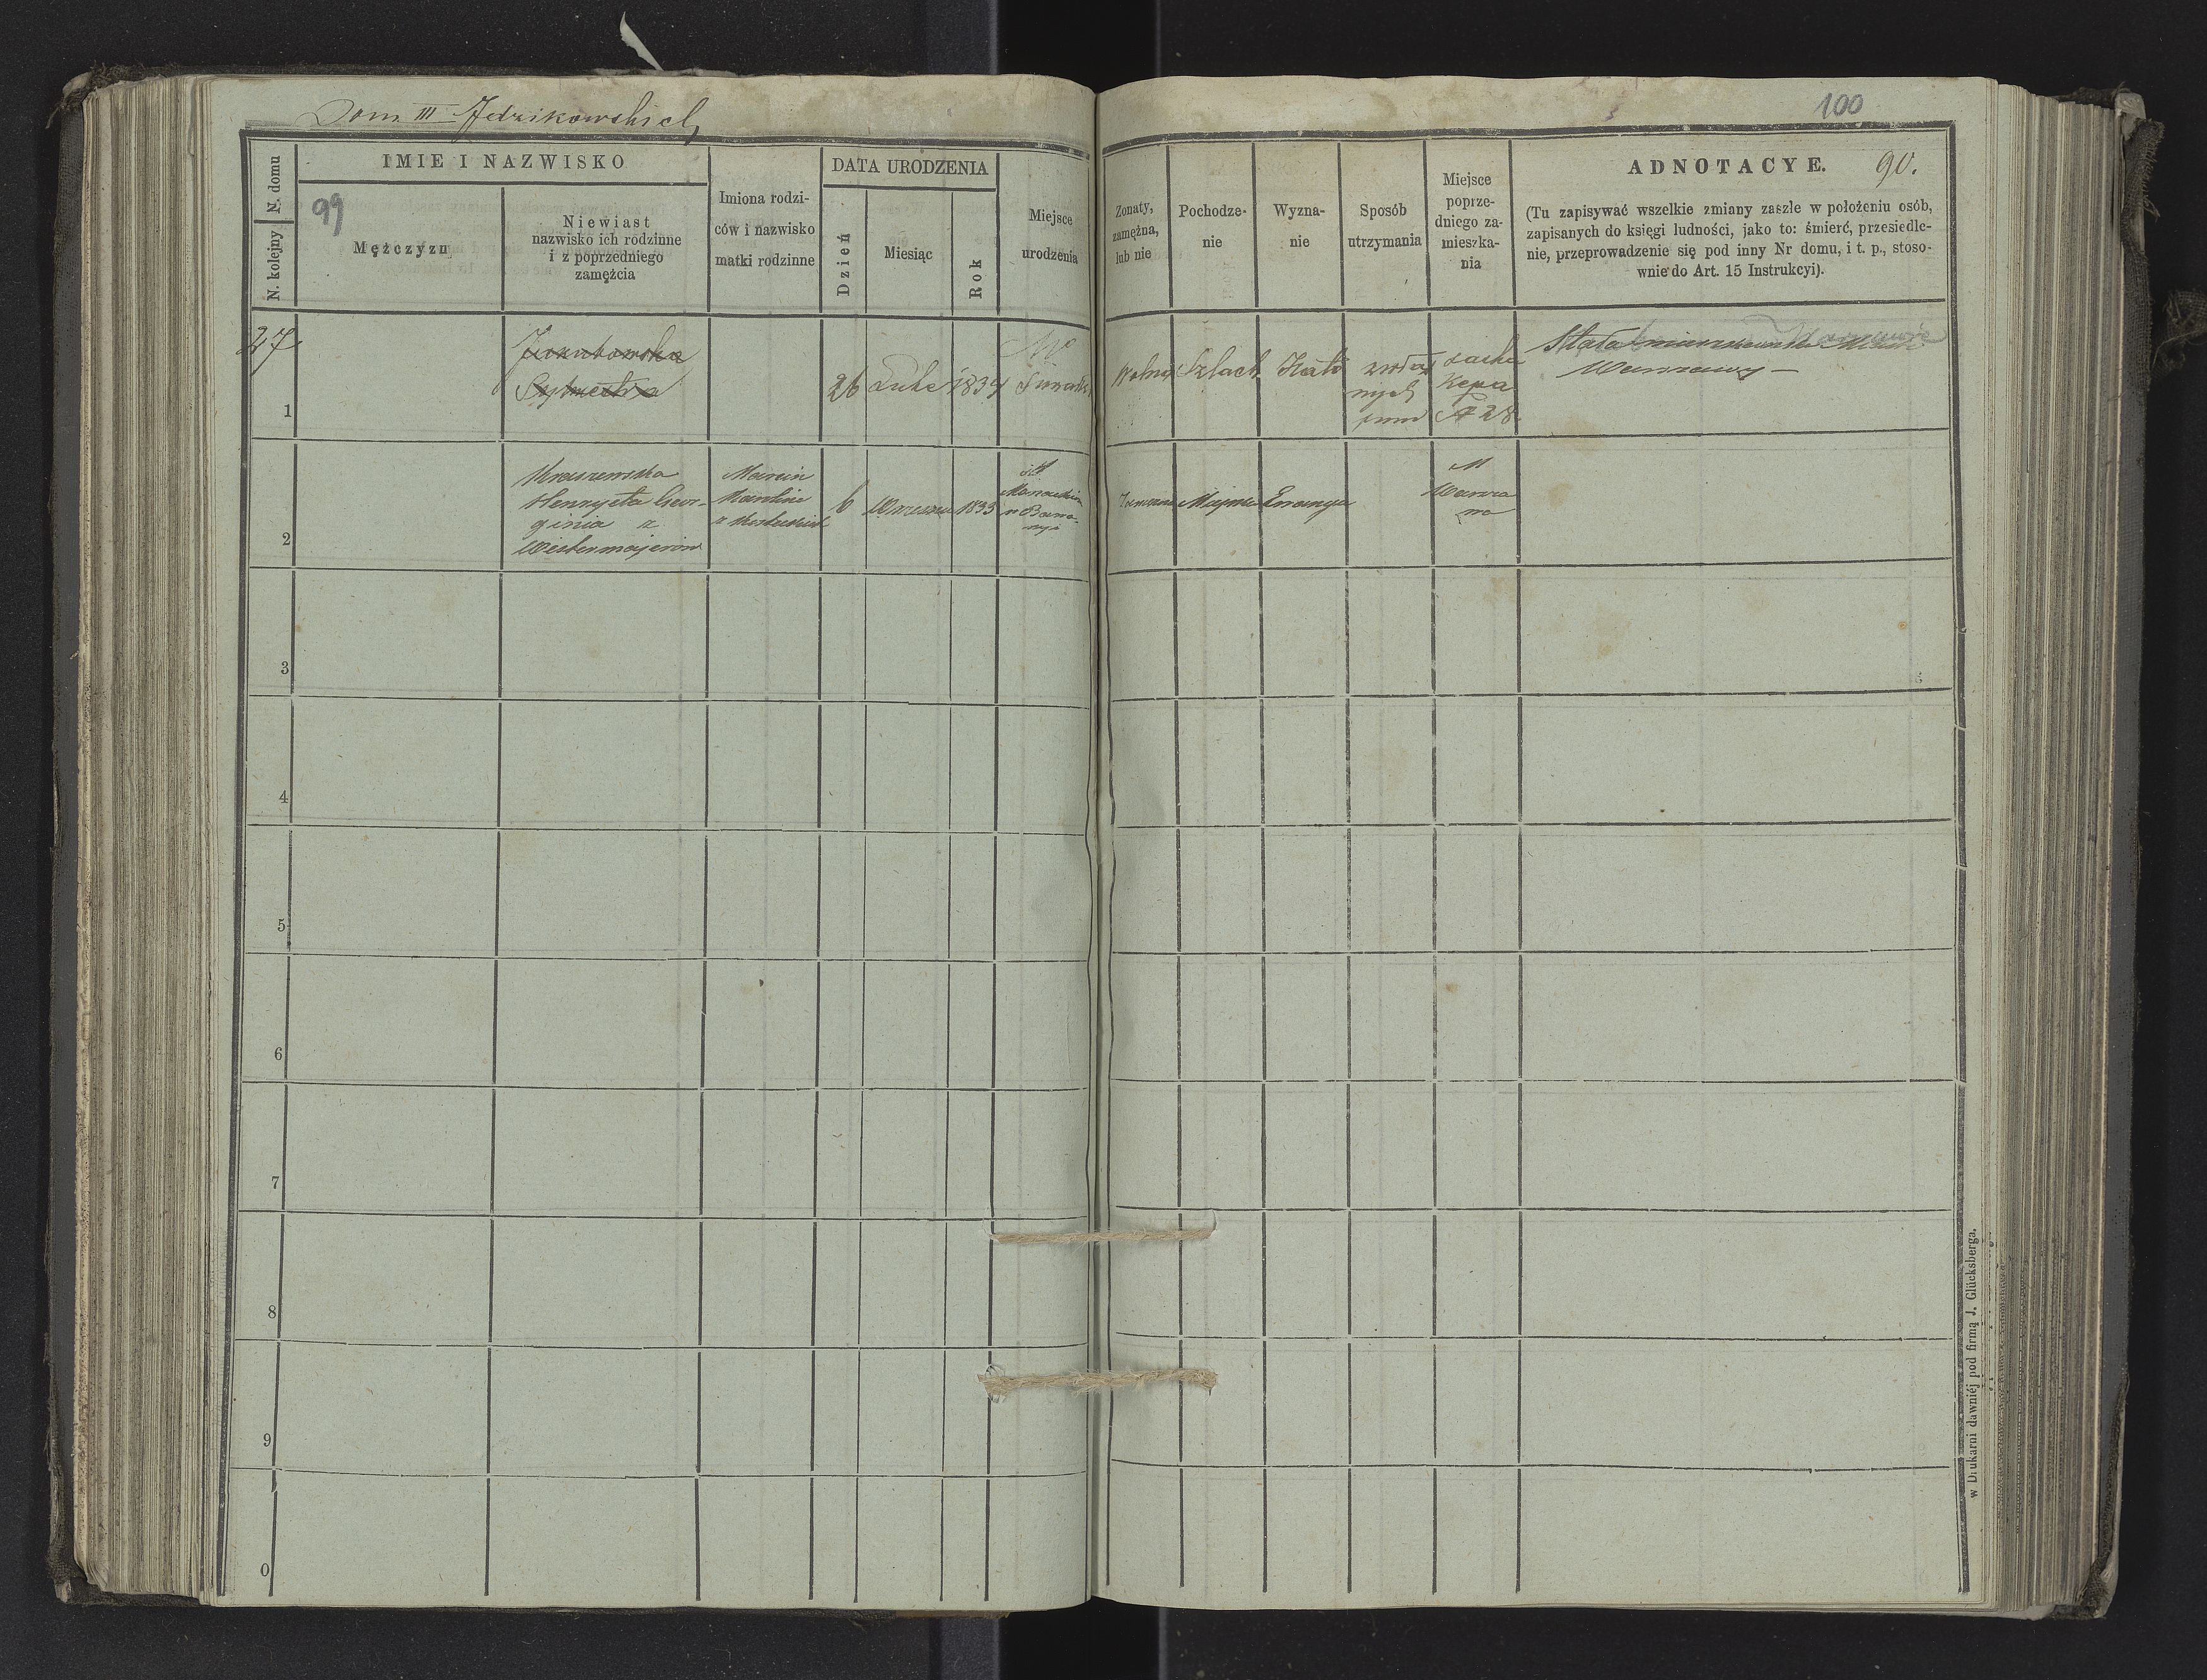 Dom III Jdzikowskich
100
N. kolejny N. domu
IMIE I NAZWISKO
99
Mężczyzn
Niewiast
nazwisko ich rodzinne
i z poprzedniego
zamężcia
Imiona rodzi-
ców i nazwisko
matki rodzinne
DATA URODZENIA
Dzień
Miesiąc
Rok
Miejsce
urodzenia
Żonaty,
zamężna,
lub nie
Pochodze-
nie
Wyzna-
nie
Sposób
utrzymania
Miejsce
poprze-
dniego za-
mieszka-
nia
ADNOTACYE. 90.
(Tu zapisywać wszelkie zmiany zaszłe w położeniu osób,
zapisanych do księgi ludności, jako to: śmierć, przesiedle-
nie, przeprowadzenie się pod inny Nr domu, i t. p., stoso-
wnie do Art. 15 Instrukcyi).
27
1
26
1834
Wolny
Szlach
Kato
nych
Saska
Kępa
N 28
Stała
Warszawy
2
Kraszewska
Henryeta Geor-
ginia z
Westermajerów
Marcin
Karolina
6
Wrzesn
1833
M
Warsza
wa
3
4
5
6
7
8
9
0
w Drukarni dawniéj pod firmą J. Glücksberga.